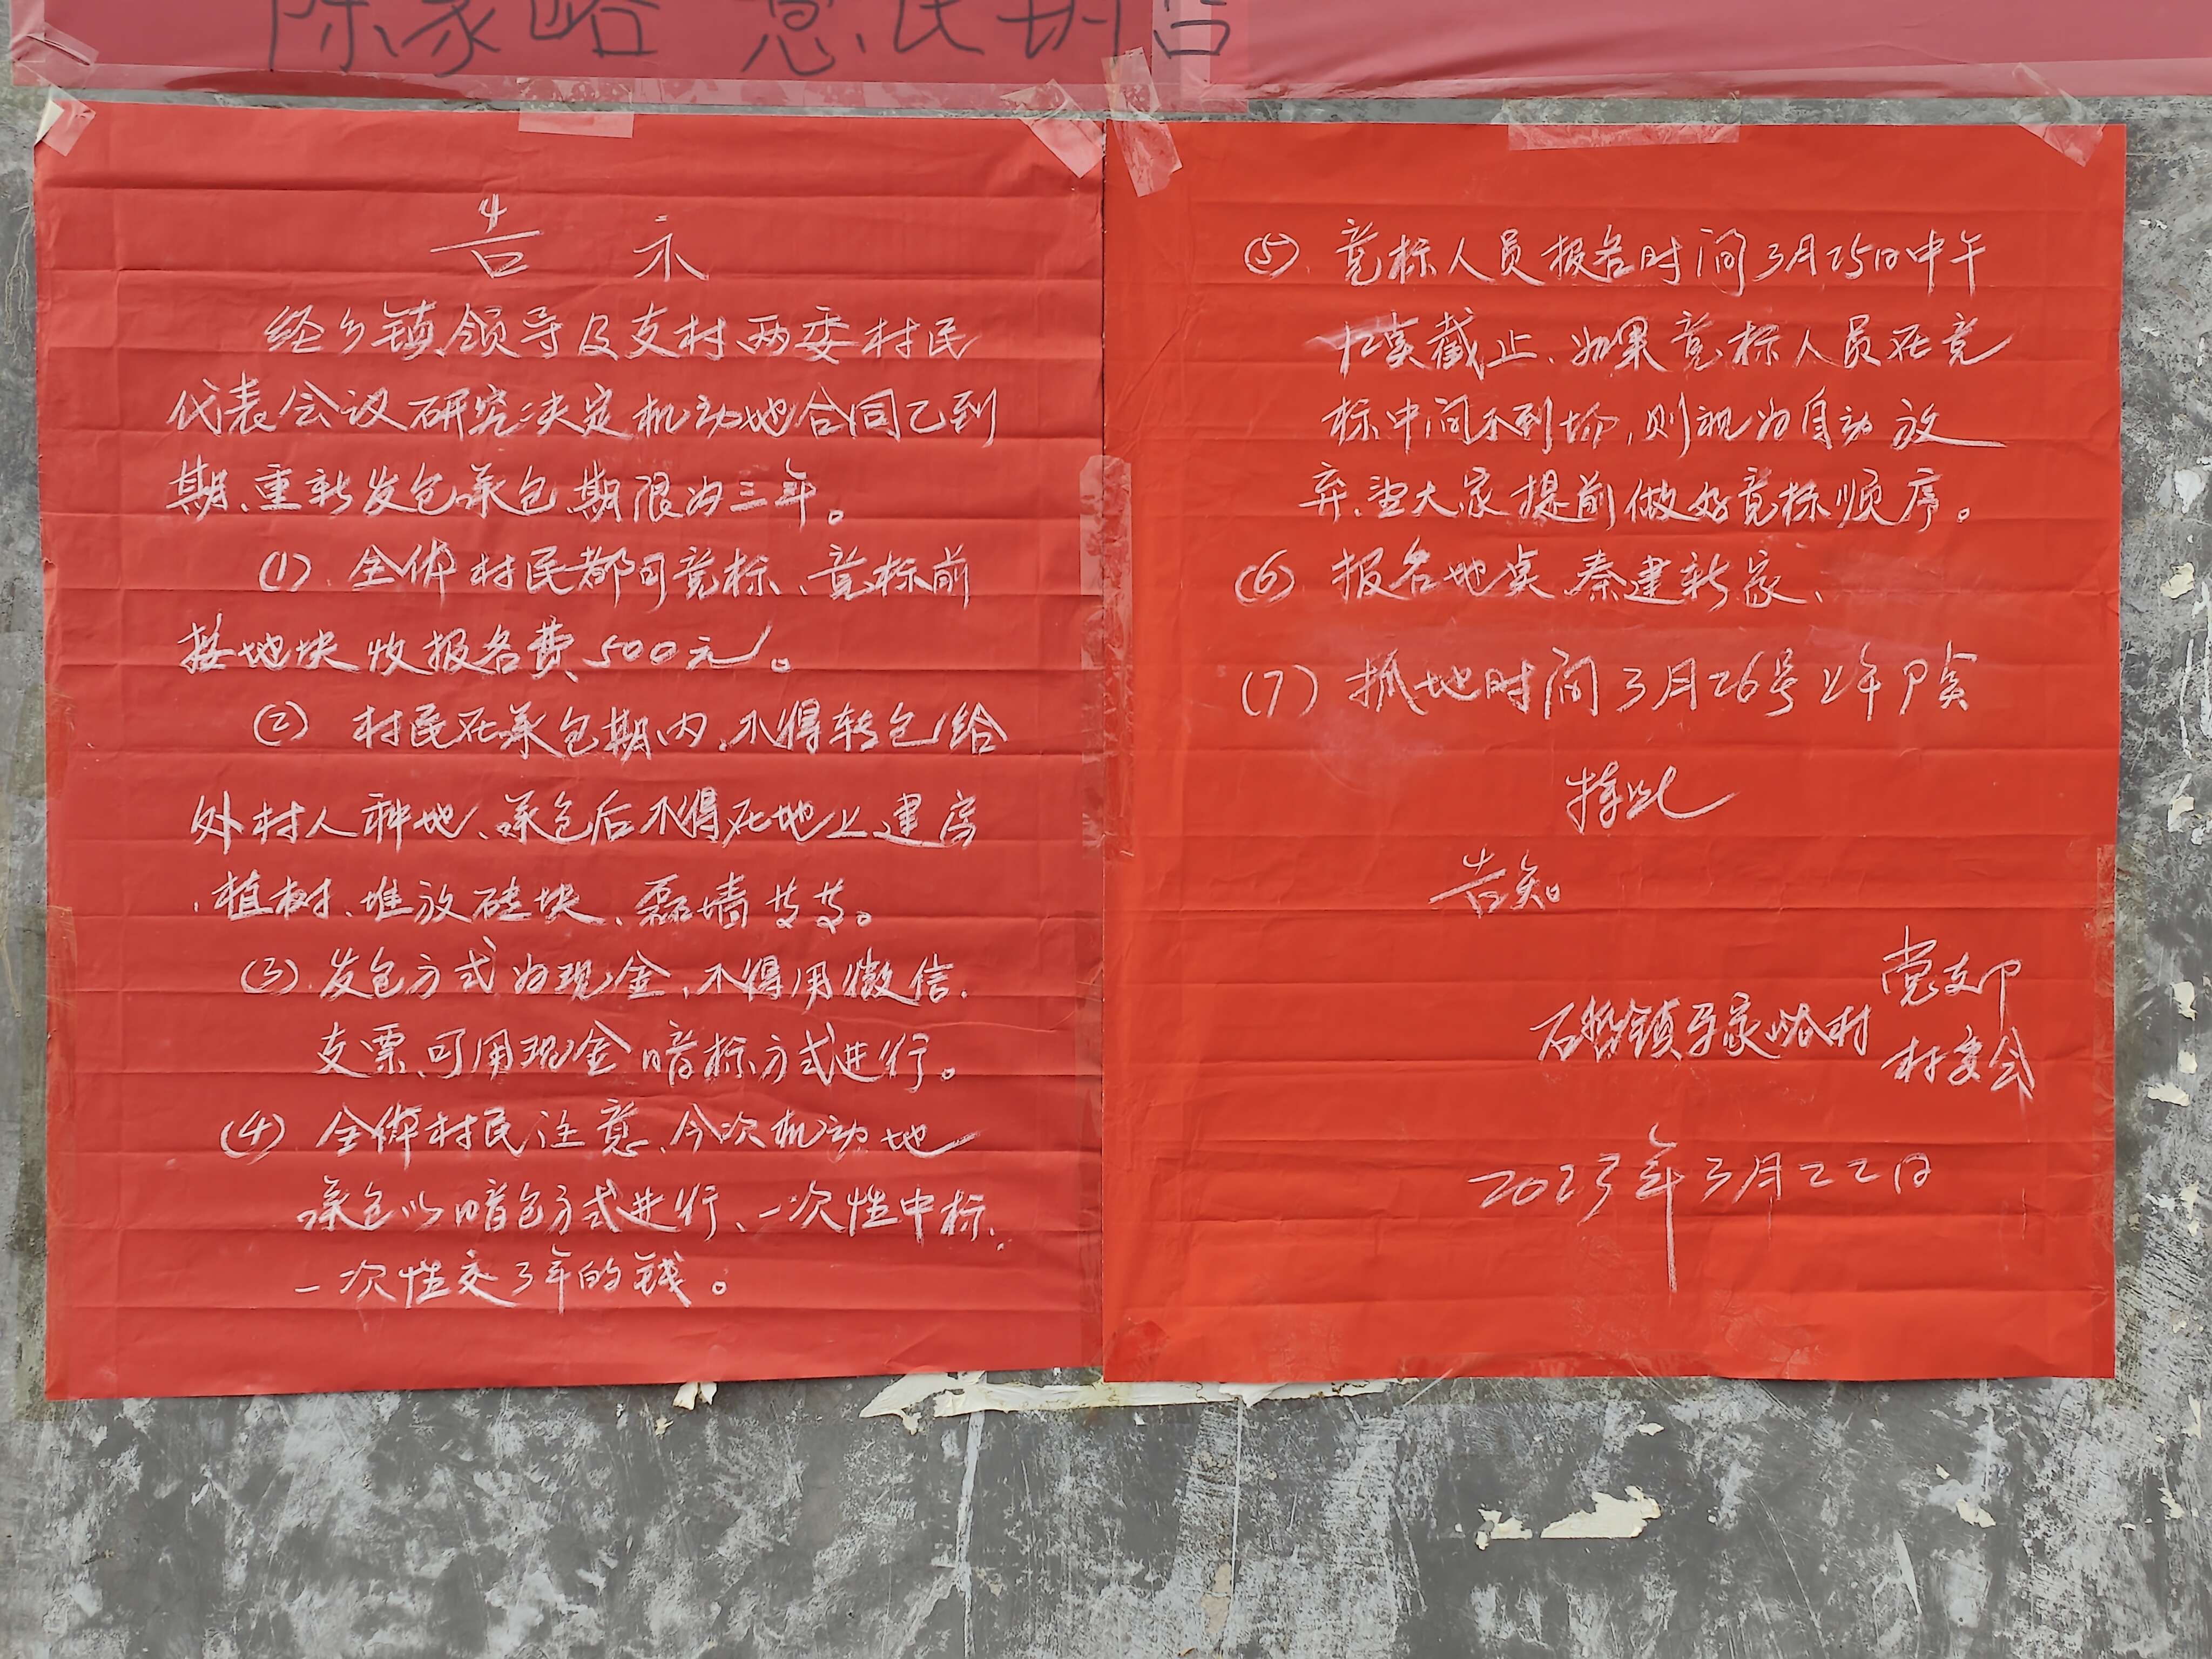 陈家峪 惠民钢管
告示
经乡镇领导及支村两委村民
代表会议研究决定机动地合同已到
期、重新发包承包期限为三年。
(1) 全体村民都可竞标、竞标前
按地块收报名费500元。
(2) 村民在承包期内,不得转包给
外村人种地、承包后不得在地上建房
、植树、堆放砖块、磊墙等等。
(3) 发包方式为现金、不得用微信、
支票、可用现金暗标方式进行。
(4) 全体村民注意、今次机动地
承包以暗包方式进行、一次性中标、
一次性交3年的钱。
(5) 竞标人员报名时间3月25日中午
12点截止、如果竞标人员在竞
标中间不到场,则视为自动放
弃、望大家提前做好竞标顺序。
(6) 报名地点、秦建新家、
(7) 抓地时间3月26号上午8点
特此
告知
党支部
镇 家峪村
村委会
2023年3月22日